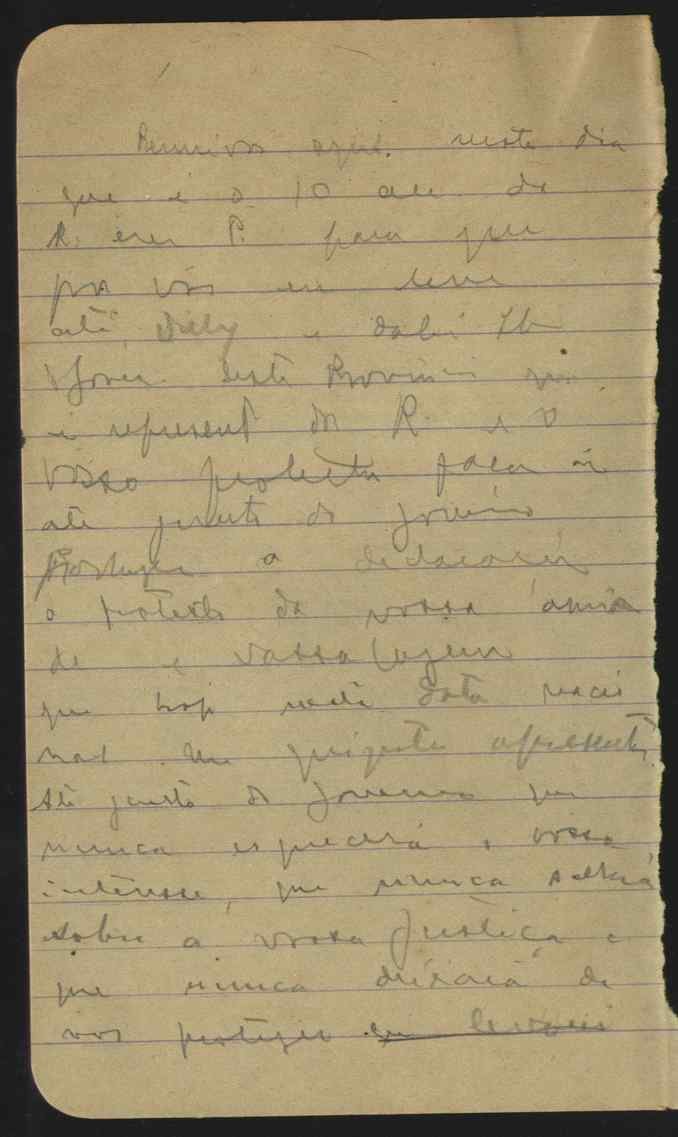 Reunivos aqui. neste dia
que é o 10 ann da
R. em P. para que
por vós eu leve
até Dilly e dahi
Governo desta Provincia que
é represent da R. e o
vosso protector faça ir
até junto do governo
Portuguez a declaração
o protesto da vossa amisa
de e vassalagem
que hoje nesta data nacio
nal me quizeste apresentar
até junto do governo que
nunca esquecerá o vosso
interesse, que nunca
sobre a vossa Justiça e
que nunca deixará de
vos proteger eu levarei